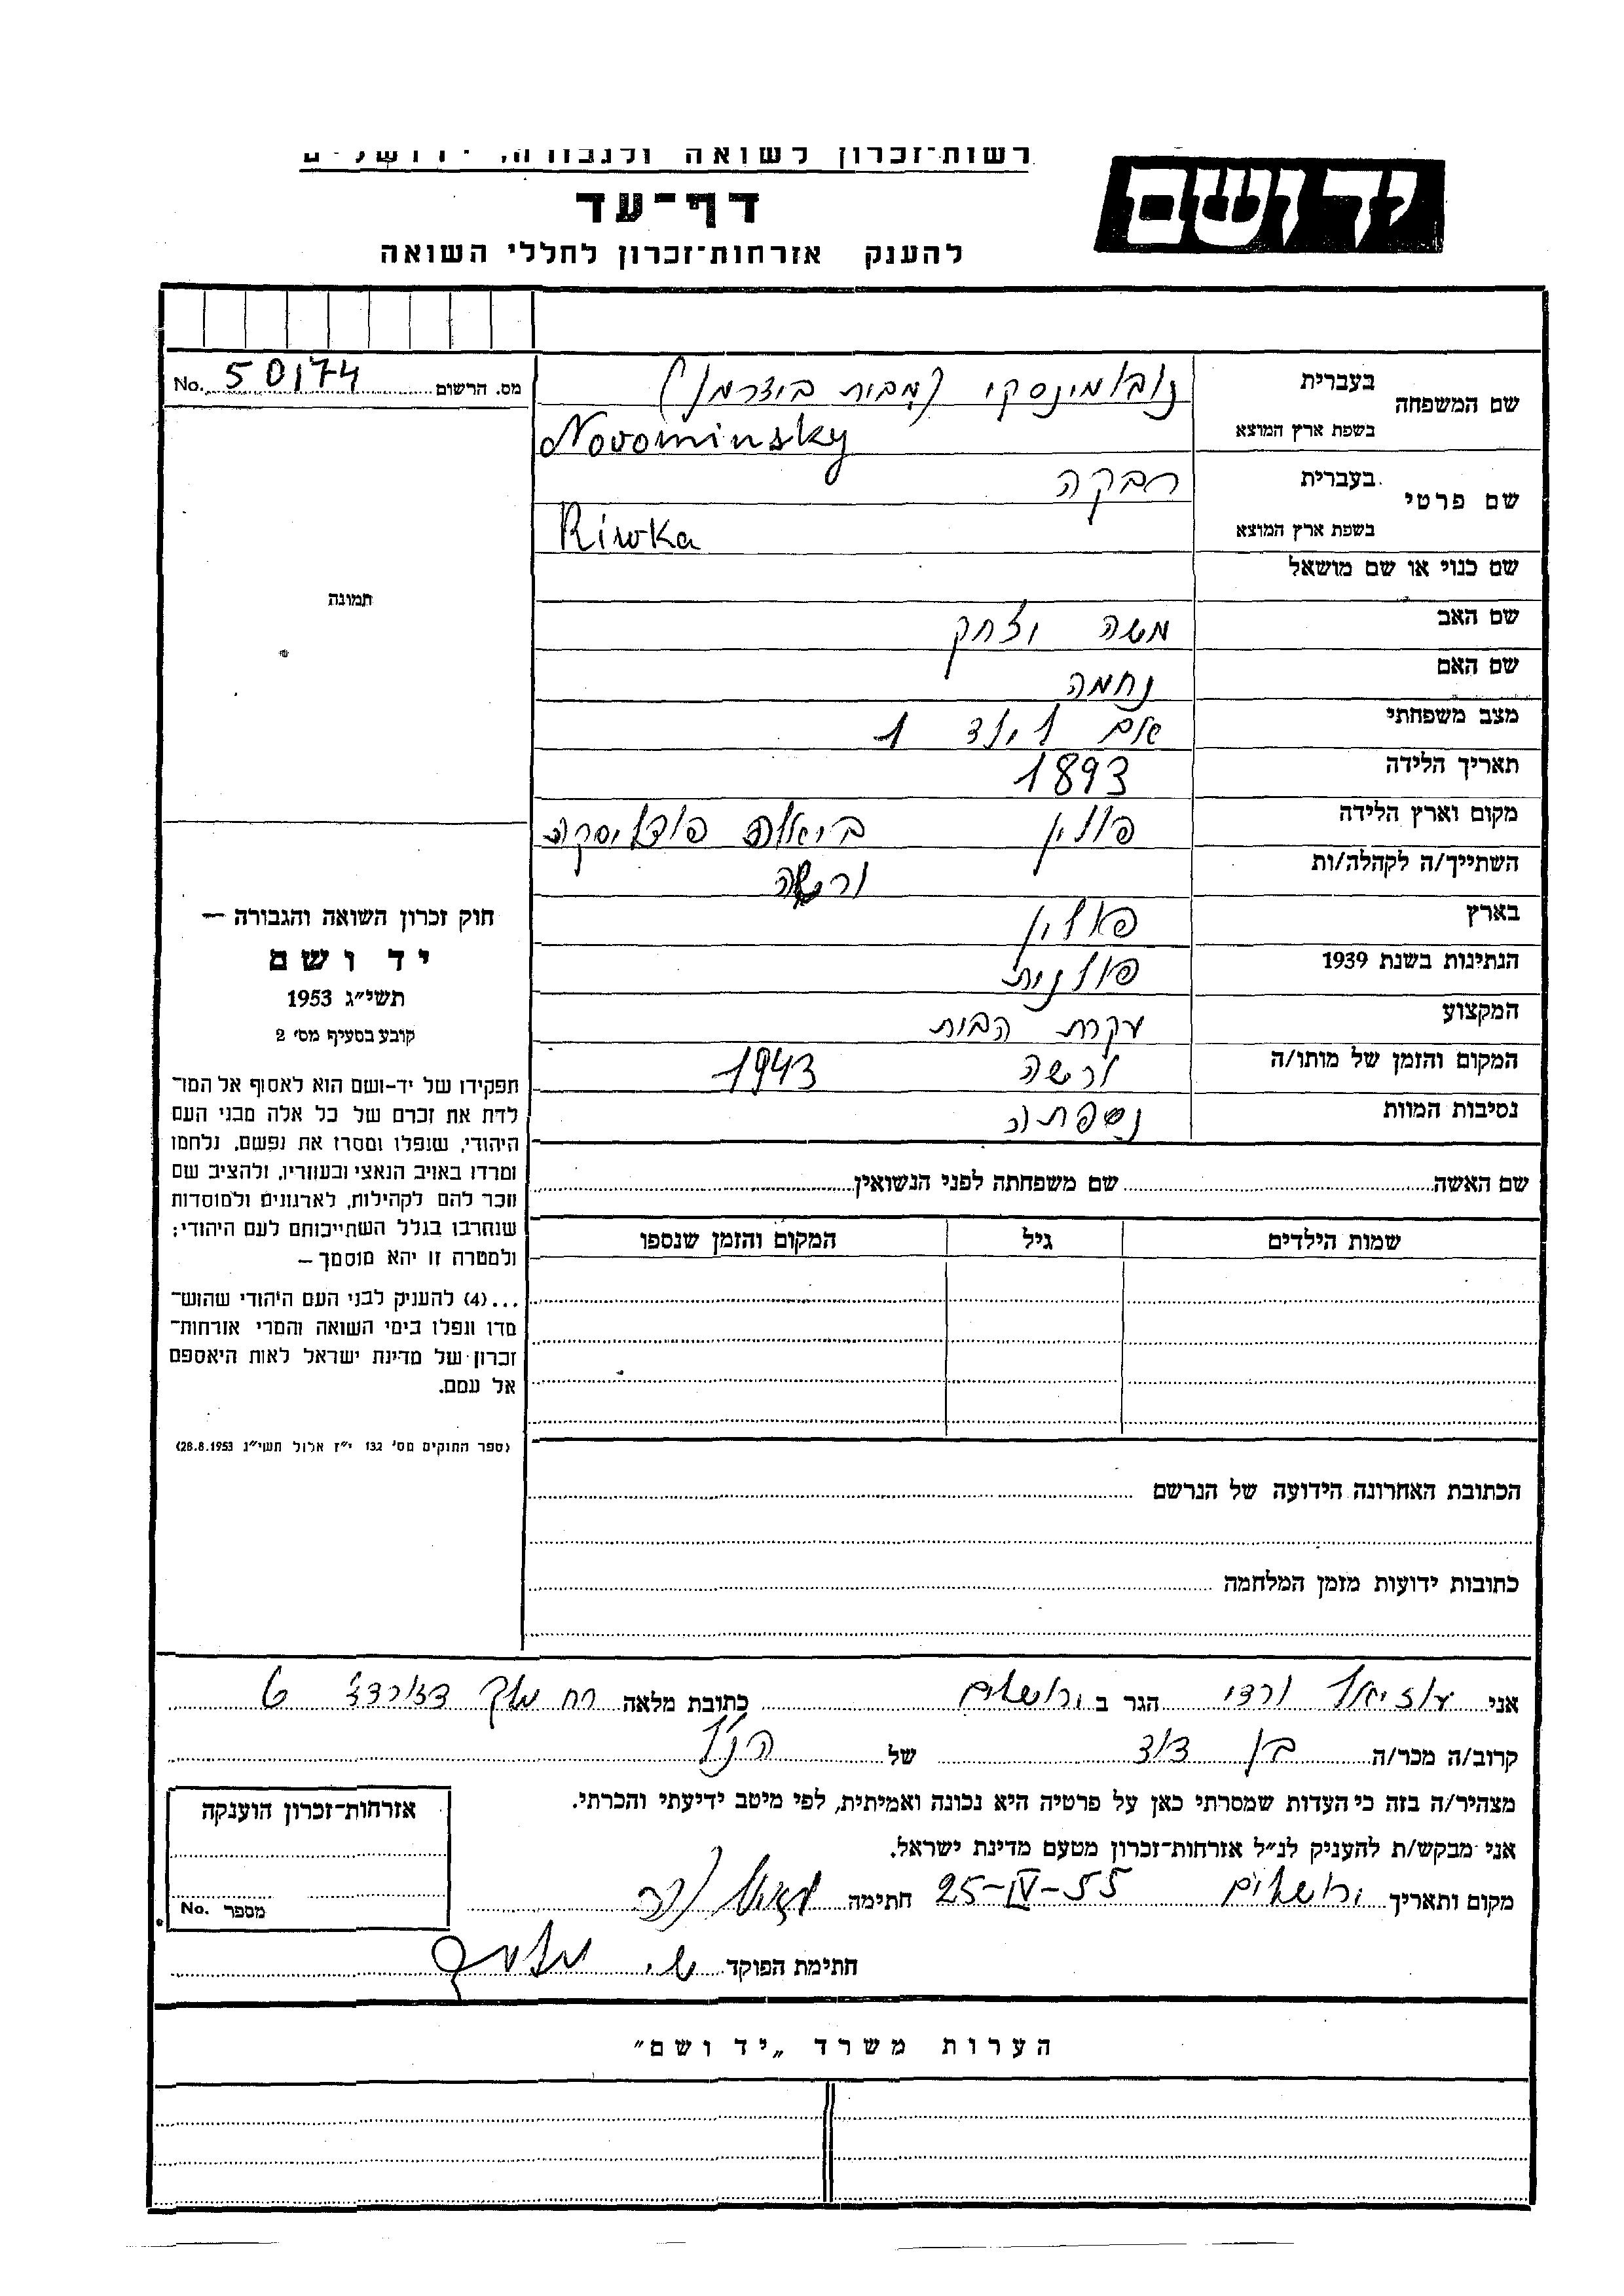 רשות־זכרון לשואה ולגבורה, ירושלים
יד ושם
דף־עד
להענק אזרחות־זכרון לחללי השואה
No. 50174 מס. הרשום
שם המשפחה
בעברית
נובומינסקי (מבית בידרמן)
בשפת ארץ המוצא
Novominsky
שם פרטי
בעברית
רבקה
בשפת ארץ המוצא
Riwka
שם כנוי או שם מושאל
שם האב משה יצחק
שם האם נחמה
מצב משפחתי אם לילד 1
תאריך הלידה 1893
מקום וארץ הלידה פולין ביאלה פודלסקה
השתייך/ה לקהלה/ות ורשה
בארץ פולין
הנתינות בשנת 1939 פולנית
המקצוע עקרת הבית
המקום והזמן של מותו/ה ורשה 1943
נסיבות המוות נספתה
תמונה
חוק זכרון השואה והגבורה —
יד ושם
תשי״ג 1953
קובע בסעיף מס׳ 2
תפקידו של יד-ושם הוא לאסוף אל המו־
לדת את זכרם של כל אלה מבני העם
היהודי, שנפלו ומסרו את נפשם, נלחמו
ומרדו באויב הנאצי ובעוזריו, ולהציב שם
וזכר להם לקהילות, לארגונים ולמוסדות
שנחרבו בגלל השתייכותם לעם היהודי;
ולמטרה זו יהא מוסמך —
...(4) להעניק לבני העם היהודי שהוש־
מדו ונפלו בימי השואה והמרי אזרחות־
זכרון של מדינת ישראל לאות היאספם
אל עמם.
(ספר החוקים מס׳ 132 י״ז אלול תשי״ג 28.8.1953)
שם האשה שם משפחתה לפני הנשואין
שמות הילדים גיל המקום והזמן שנספו
הכתובת האחרונה הידועה של הנרשם
כתובות ידועות מזמן המלחמה
אני עוזיאל ורדי הגר ב ירושלים כתובת מלאה רח מלך דז׳ורדז׳ 6
קרוב/ה מכר/ה בן דוד של הנ״ל
מצהיר/ה בזה כי העדות שמסרתי כאן על פרטיה היא נכונה ואמיתית, לפי מיטב ידיעתי והכרתי.
אני מבקש/ת להעניק לנ״ל אזרחות־זכרון מטעם מדינת ישראל.
מקום ותאריך ירושלים 25-IV-55 חתימה
חתימת הפוקד
אזרחות־זכרון הוענקה
No. מספר
הערות משרד „יד ושם״